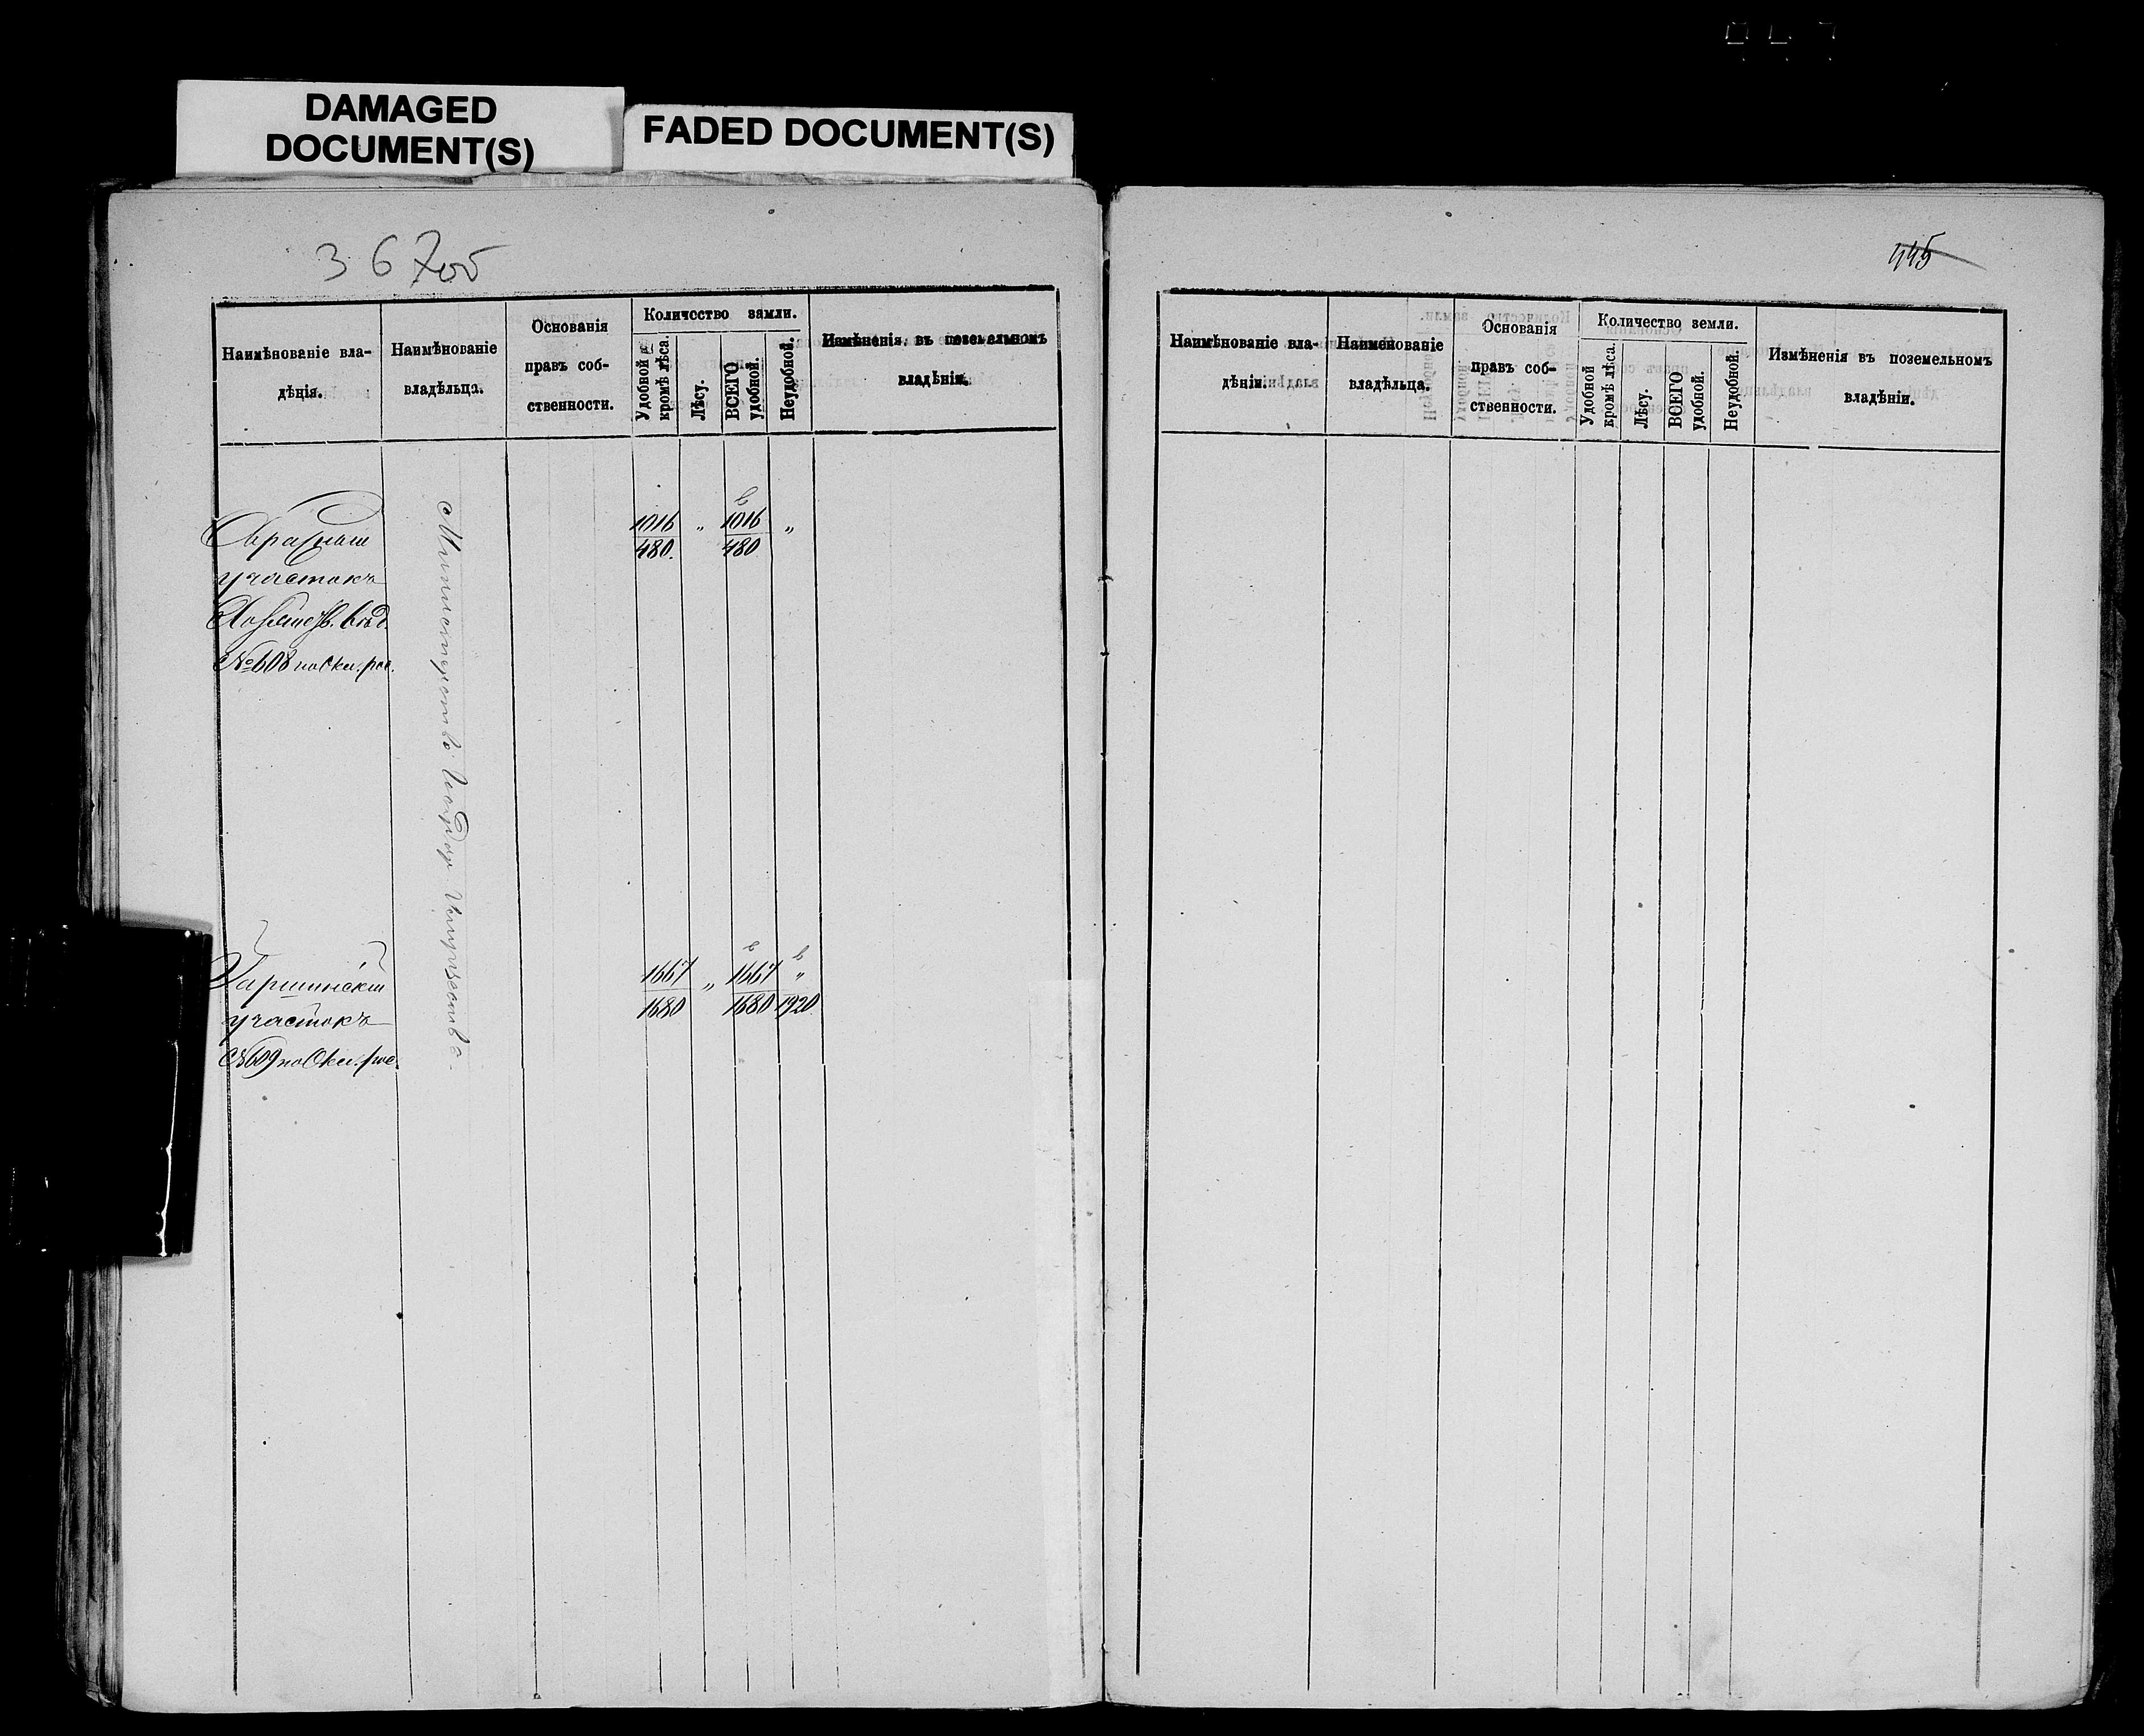 DAMAGED
DOCUMENT(S)
FADED DOCUMENT(S)
367об
445
Наимѣнованіе вла-
дѣнія.
Наимѣнованіе
владѣльца.
Основанія
правъ соб-
ственности.
Количество земли.
Удобной
кромѣ лѣса.
Лѣсу.
ВСЕГО
удобной.
Неудобной.
Измѣненія въ поземельномъ
владѣніи.
участокъ
№608 по Окл. рос.
Министерство Государ Имуществъ
1016 „ 1016 „
480. 480
Гаршинскій
участокъ
№609 по Окл. рос.
1667 „ 1667 „
1680 1680 1920
Наимѣнованіе вла-
дѣніи.
Наименованіе
владѣльца.
Основанія
правъ соб-
ственности.
Количество земли.
Удобной
кромѣ лѣса.
Лѣсу.
ВСЕГО
удобной.
Неудобной.
Измѣненія въ поземельномъ
владѣніи.